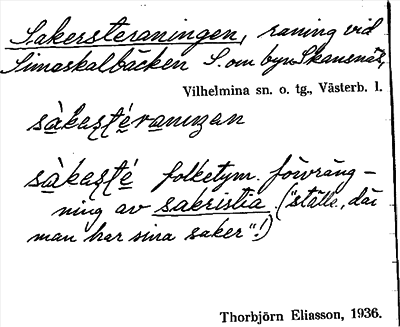 Sakersteraningen, raning vid
Simaskalbäcken S. om byn Skansnäs,
Vilhelmina sn. o. tg., Västerb. l.
folketym. förvräng-
ning av sakristia ("ställe, där
man har sina saker"!)
Thorbjörn Eliasson, 1936.